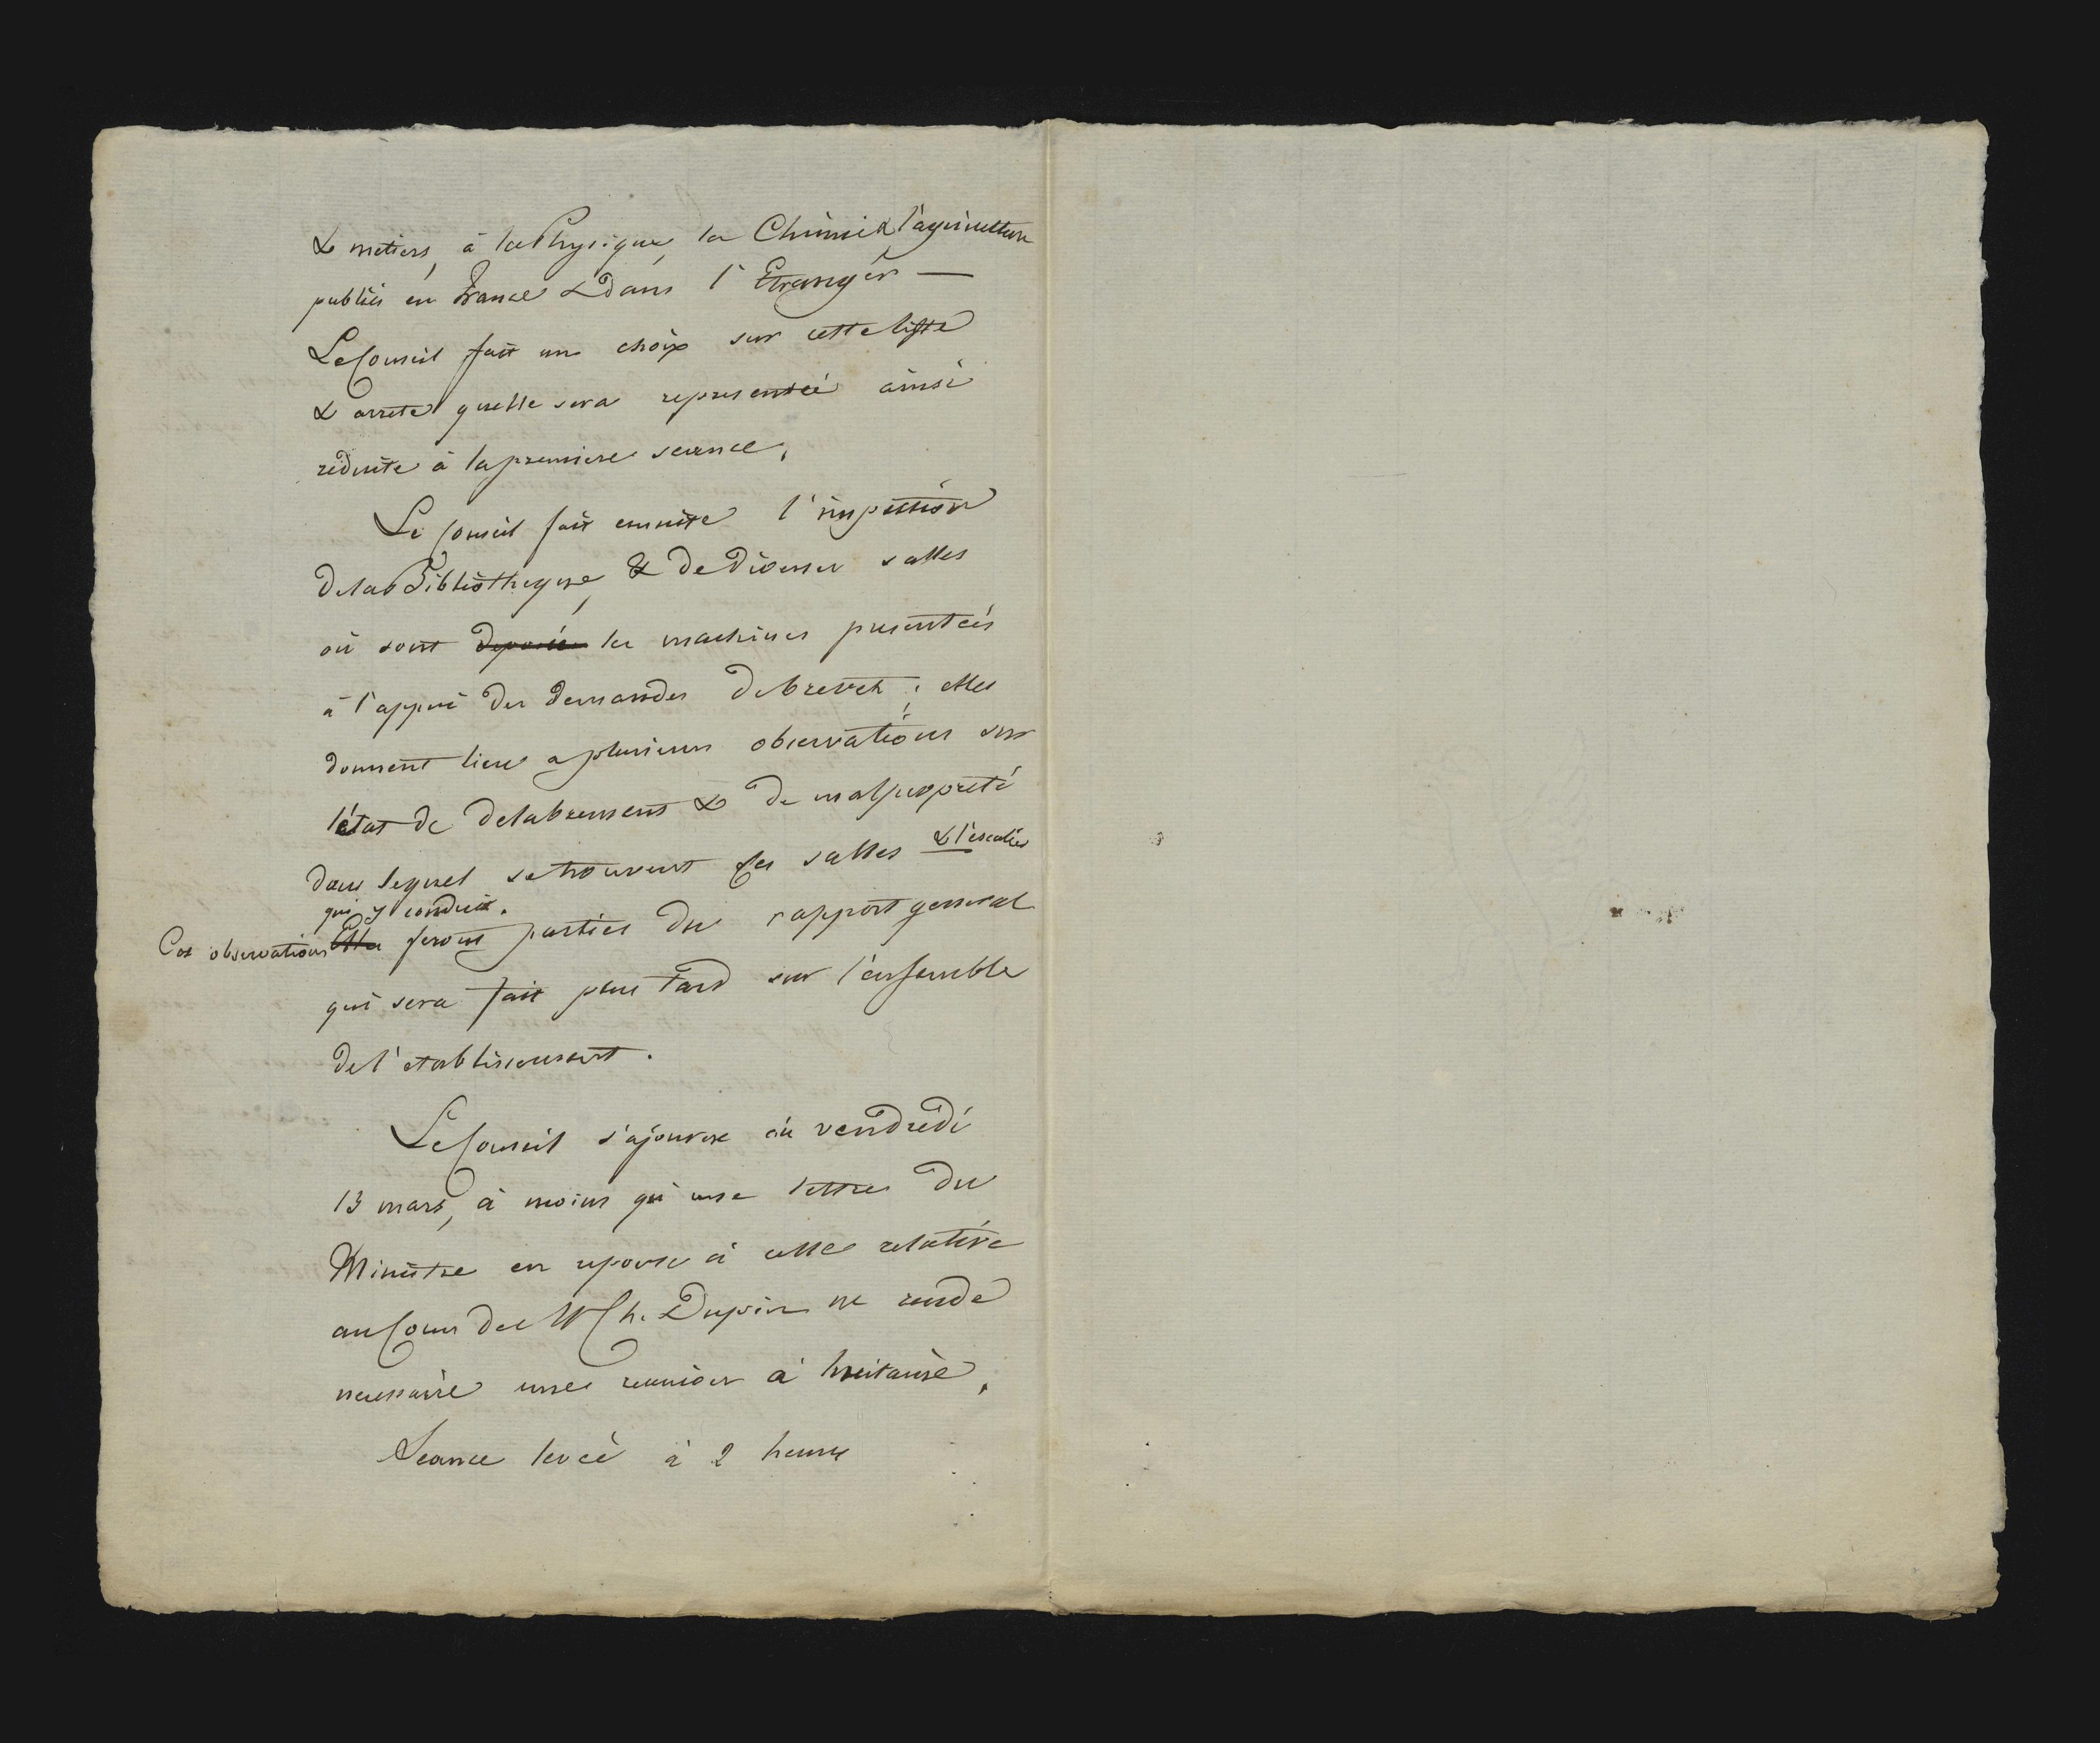 & metiers, à la Physique, la Chimie & l'agriculture
publiés en France & dans l'Etranger —
Le Conseil fait un choix sur cette liste
& arrete quelle sera representée ainsi
réduite à la premiere seance.
Le Conseil fait ensuite l'inspection
de la Bibliotheque, & de diverses salles
où sont deposées les machines presentées
à l'appui des demandes de brevets; elles
donnent lieu a plusieurs observations sur
l'état de delabrement & de malpropreté
dans lequel se trouvent les salles & l'escalier
qui y conduit.
Ces observations Elles feront parties du rapport general
qui sera fait plus tard sur l'ensemble
de l'etablissement.
Le Conseil s'ajourne au vendredi
13 mars, à moins qu'une lettre du
Ministre en reponse à celle relative
au Cours de M Ch. Dupin ne rende
necessaire une reunion à huitaine.
Seance levée à 2 heures